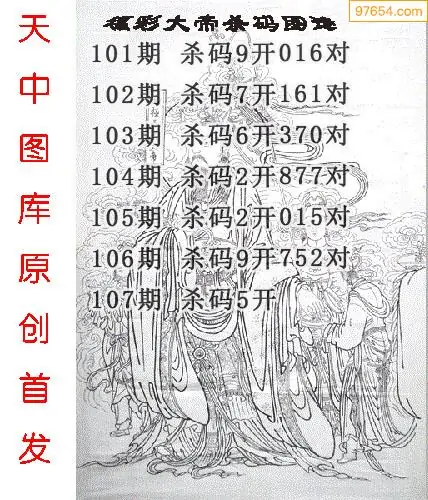 97654.com
福彩大帝杀码图
101期 杀码9开016对
102期 杀码7开161对
103期 杀码6开370对
104期 杀码2开877对
105期 杀码2开015对
106期 杀码9开752对
107期 杀码5开
天中图库原创首发